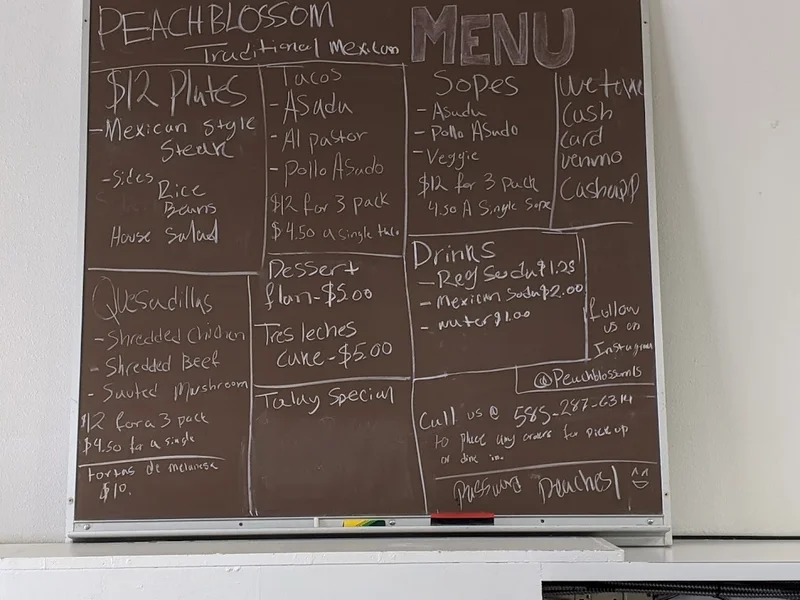 PEACHBLOSSOM
Traditional Mexican
MENU
$12 Plates
- Mexican Style
Steak
- Sides
Rice
Beans
House Salad
Tacos
- Asada
- Al pastor
- Pollo Asado
$12 for 3 pack
$4.50 a single taco
Sopes
- Asada
- Pollo Asado
- Veggie
$12 for 3 pack
4.50 A Single Sope
We take
Cash
Card
Venmo
Cashapp
Quesadillas
- Shredded Chicken
- Shredded Beef
- Sauted Mushroom
$12 for a 3 pack
$4.50 for a single
tortas de melanesa
$10.
Dessert
flan - $5.00
Tres leches
cake - $5.00
Today Special
Drinks
- Reg Soda $1.25
- Mexican Soda $2.00
- water $1.00
follow
us on
Instagram
@Peachblossom15
Call us @ 585-287-6314
to place any orders for pick up
or dine in.
Password Peaches1